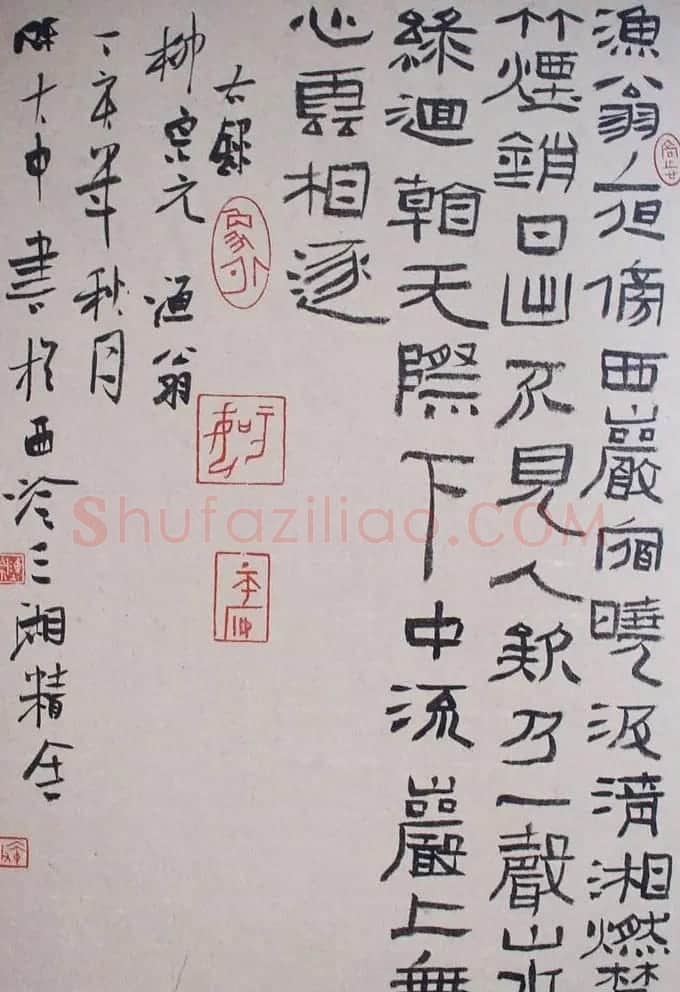 漁翁夜傍西巖宿曉汲清湘燃楚
竹煙銷日出不見人欸乃一聲山水
綠迴看天際下中流巖上無
心雲相逐
右錄
柳宗元漁翁
丁亥年秋月
陳大中書於西泠三湘精舍
Shufaziliao.COM